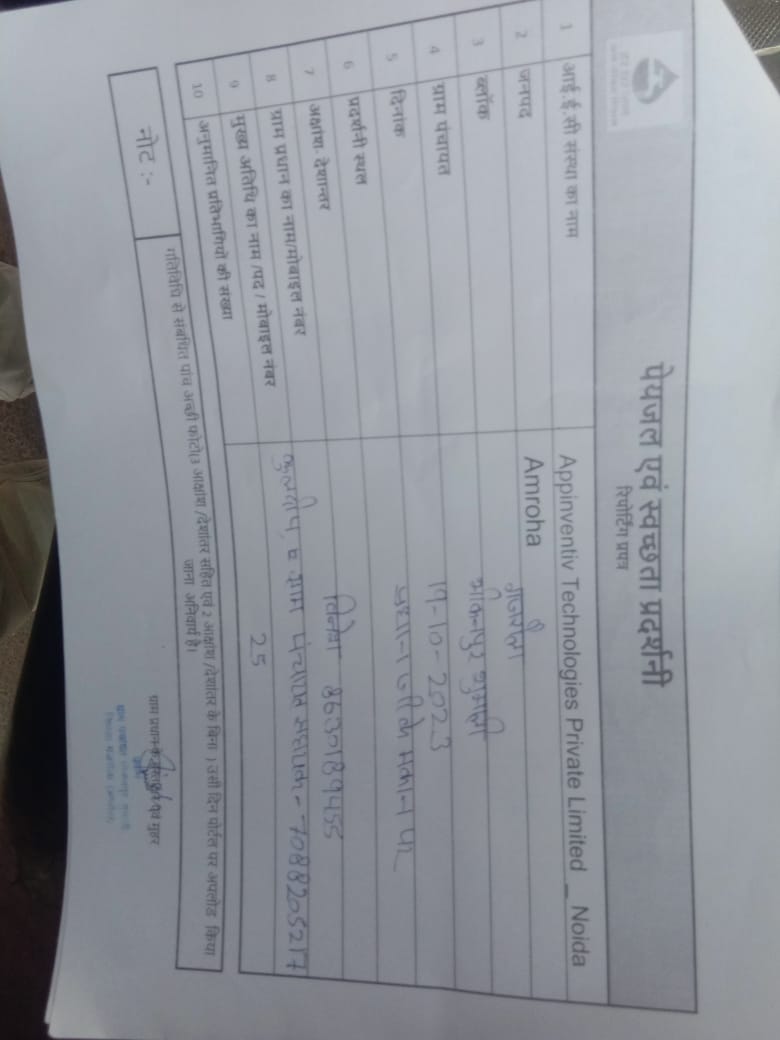 पेयजल एवं स्वच्छता प्रदर्शनी
रिपोर्टिंग प्रपत्र
1 आई.ई.सी संस्था का नाम Appinventiv Technologies Private Limited _ Noida
2 जनपद Amroha
3 ब्लॉक गजरौला
4 ग्राम पंचायत
5 दिनांक 19-10-2023
6 प्रदर्शनी स्थल प्रधान जी के मकान पर
7 अक्षांश- देशान्तर
8 ग्राम प्रधान का नाम/मोबाइल नंबर 8630189455
9 मुख्य अतिथि का नाम /पद / मोबाइल नंबर कुलदीप ग्राम पंचायत सहायक - 7088205217
10 अनुमानित प्रतिभागियो की संख्या 25
नोट :- गतिविधि से संबंधित पांच अच्छी फोटो(3 आक्षांश /देशांतर सहित एवं 2 आक्षांश /देशांतर के बिना ) उसी दिन पोर्टल पर अपलोड किया
जाना अनिवार्य है।
ग्राम प्रधान के हस्ताक्षर एवं मुहर